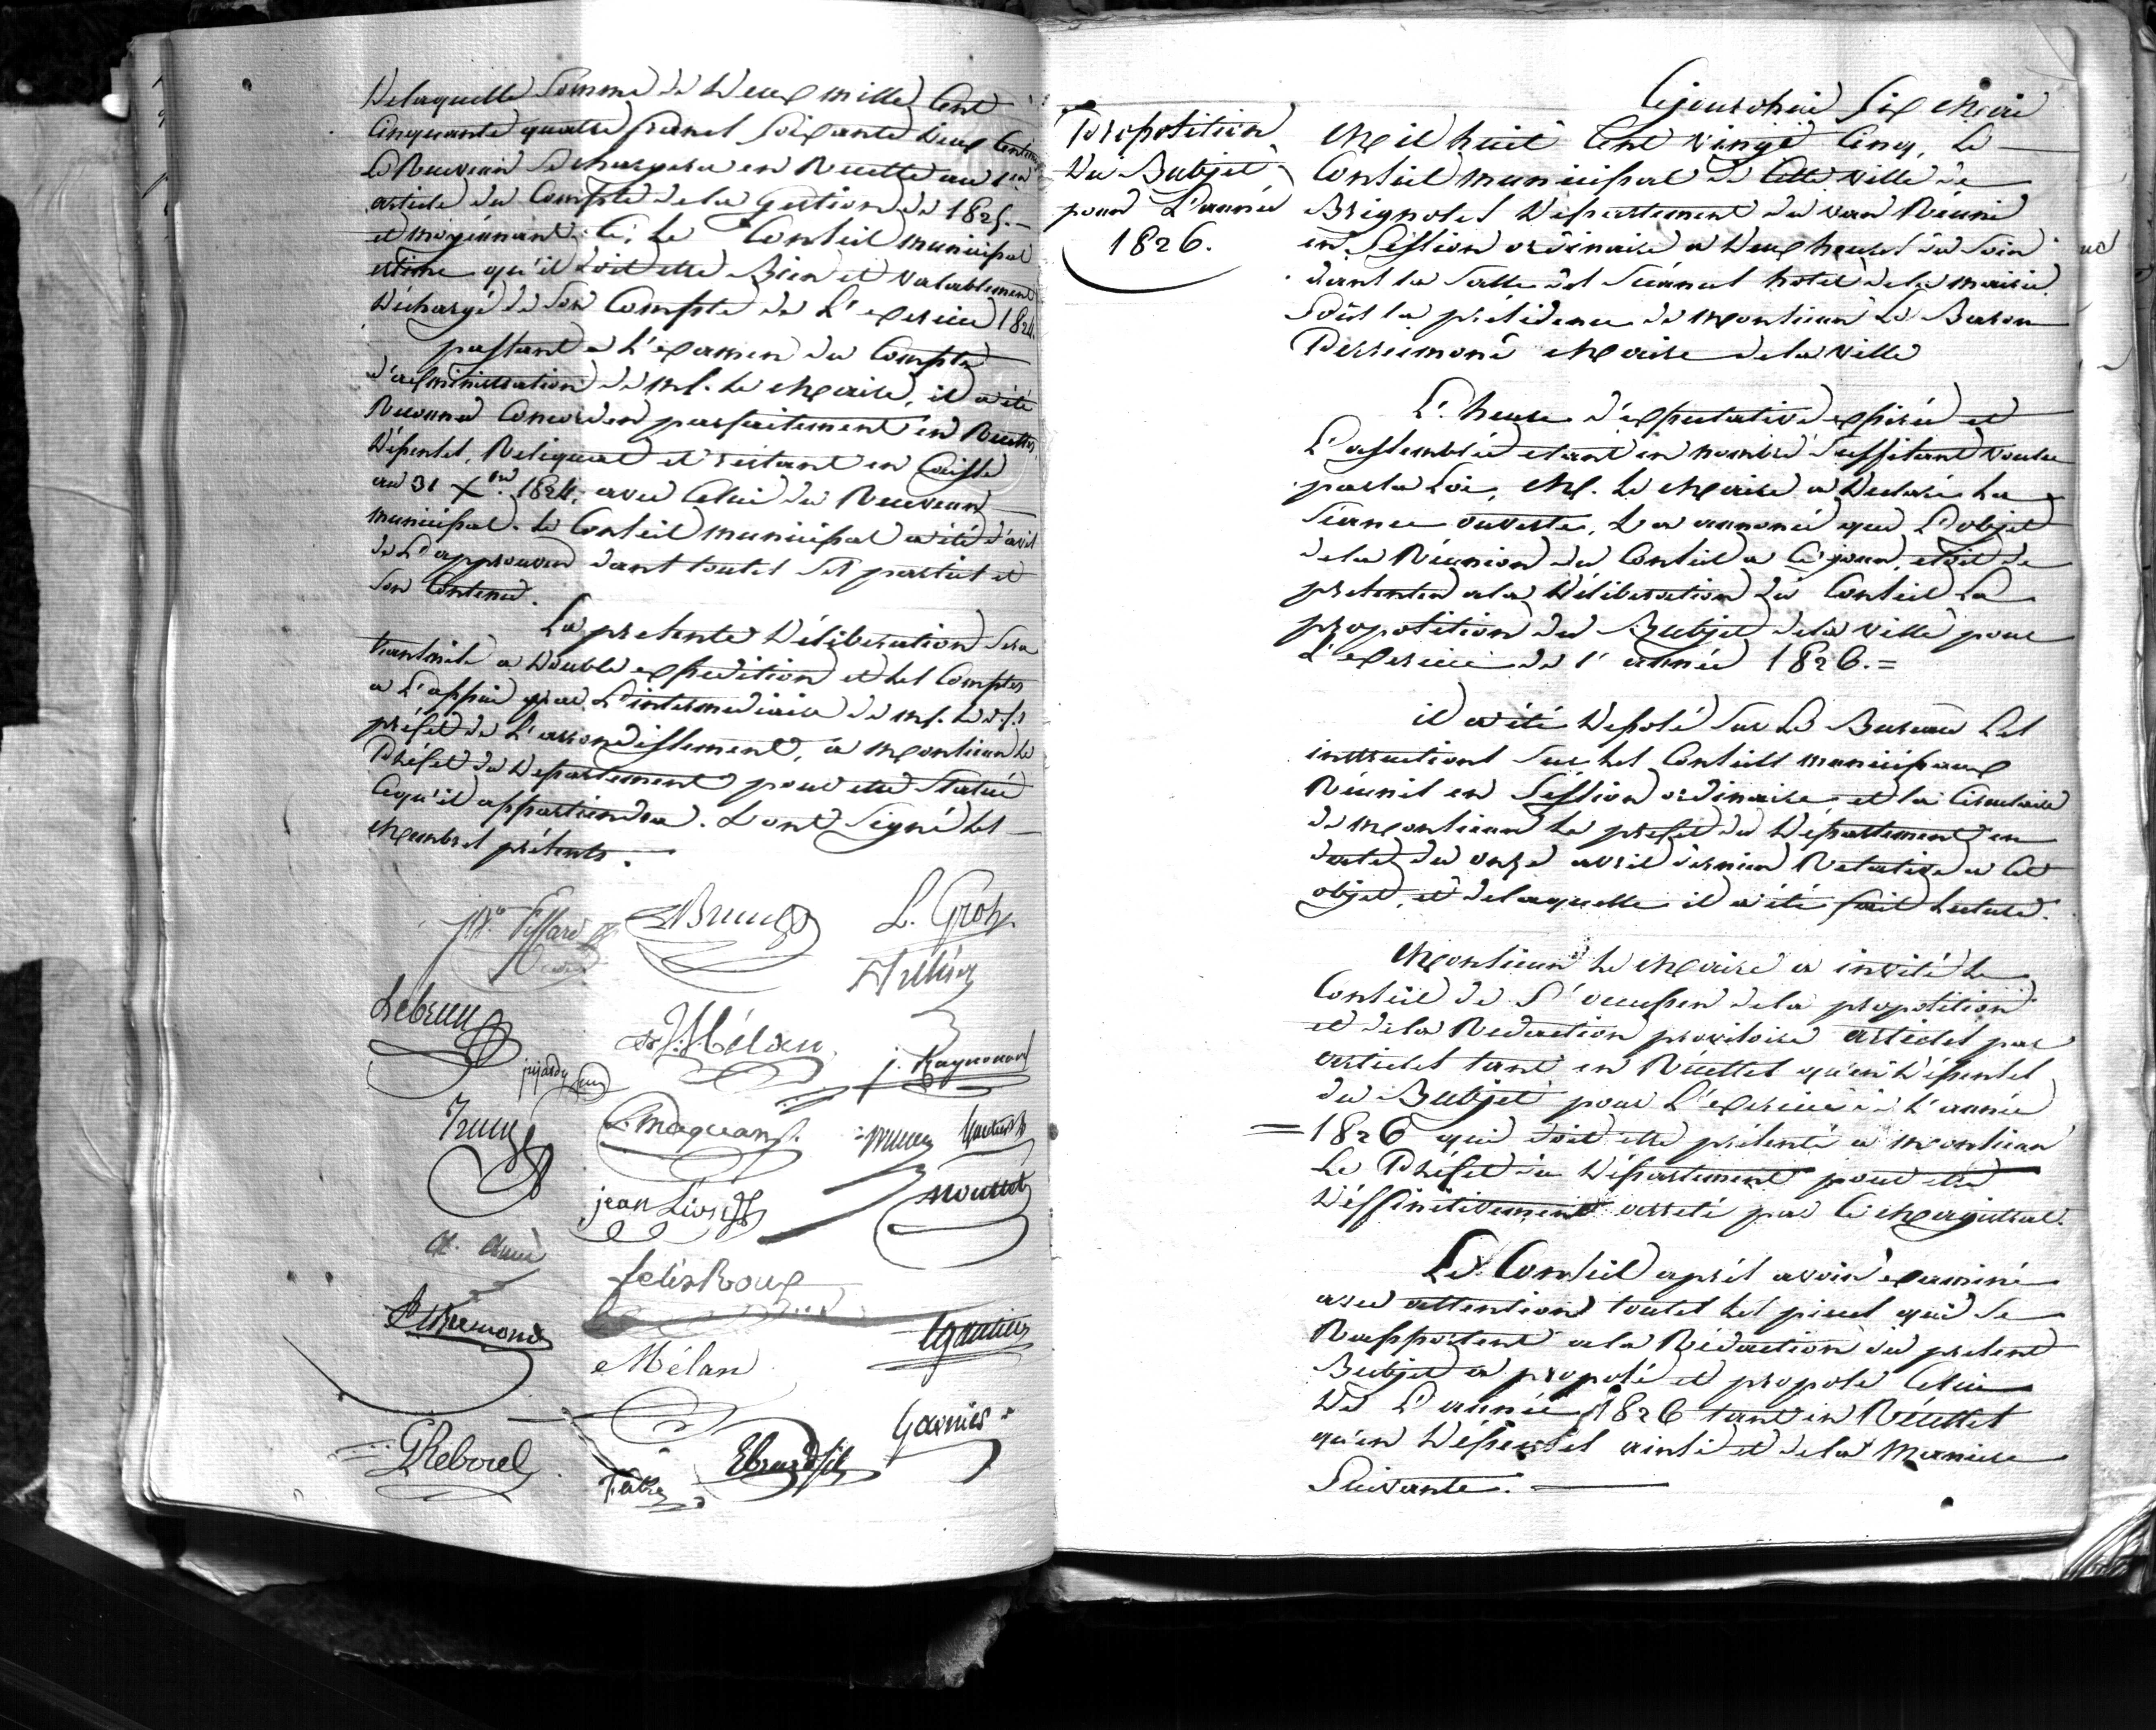 Delaquelle Somme de Deux mille Cent
Cinquante quatre francs Soixante Deux Centimes
Le Receveur Se chargera en Recette au 1er
article du Compte de la Gestion de 1825. —
et moyennant Ce, Le Conseil municipal
estime qu'il doit etre Bien et valablement
Déchargé de Son Compte de L'exercice 1824.
passant a L'examen du Compte
d'administration de mr. Le Maire, il a été
Reconnu Concorder parfaitement en Recettes,
Dépenses, Reliquat et restant en Caisse
au 31 Xbre 1824, avec Celui du Receveur
municipal. Le Conseil municipal a été d'avis
de L'approuver dans toutes Ses parties et
Son Contenu.
La presente Déliberation Sera
transmise a Double expedition et les Comptes
a L'appui par L'intermediaire de mr. Le s.
préfet de L'arrondissement, à Monsieur Le
Préfet du Département pour etre Statué
Cequ'il appartiendra. Et ont Signé les —
Membres présents.
Brun L. Gros
Lebrun
Mélan j. Raynouard
Maquan
jean Lion
felix Roux
Perremond
Mélan Gautier
Reboul Fabre Ebrard fils Garnier
Proposition
Du Budjet
pour L'année
1826.
Cejourdhui Six Mai
Mil huit Cent vingt Cinq, Le —
Conseil municipal de Cette ville de
Brignoles Département du var Réuni
en Session ordinaire a Deux heures du Soir
dans la Salle des Séances hotel de la mairie
Sous la présidence de Monsieur Le Baron
Perremond Maire de la ville
L'heure d'expectative expirée et
L'assemblée etant en nombre Suffisant voulu
par la Loi, M. Le Maire a Declaré La
Séance ouverte, Et a annoncé que L'objet
de la Réunion du Conseil a Ce jour, etoit de
presenter a la Déliberation du Conseil La
proposition du Budjet de la ville pour
L'exercice de l'année 1826. =
il a été Déposé Sur Le Bureau Les
instructions Sur les Conseils municipaux
Réunis en Session ordinaire et la Circulaire
de Monsieur Le prefet du Département en
date du onze avril dernier Relative a Cet
objet, et delaquelle il a été fait Lecture.
Monsieur Le Maire a invité Le
Conseil de S'occuper de la proposition
et de la Redaction provisoire articles par
articles tant en Récettes qu'en Dépenses
du Budjet pour L'exercice de L'année
= 1826 qui doit etre présenté a Monsieur
Le Préfet du Département pour etre
Déffinitivement arreté par Ce Magistrat.
Le Conseil aprés avoir examiné
avec attention toutes Les pieces qui Se
Rapportent a la Rédaction du present
Budjet a proposé et propose Celui
De L'année 1826 tant en Récettes
qu'en Dépenses ainsi et de la Maniere
Suivante. —